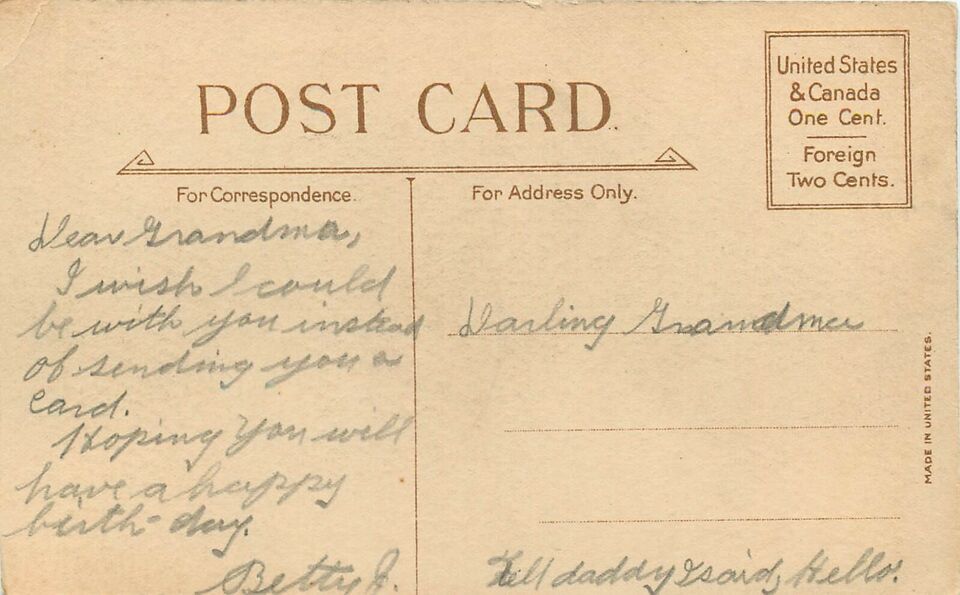 POST CARD
United States
& Canada
One Cent.
Foreign
Two Cents.
For Correspondence.
For Address Only.
Dear Grandma,
I wish I could
be with you instead
of sending you a
card.
Hoping you will
have a happy
birth-day.
Betty J.
Darling Grandma
Tell daddy I said, Hello.
MADE IN UNITED STATES.